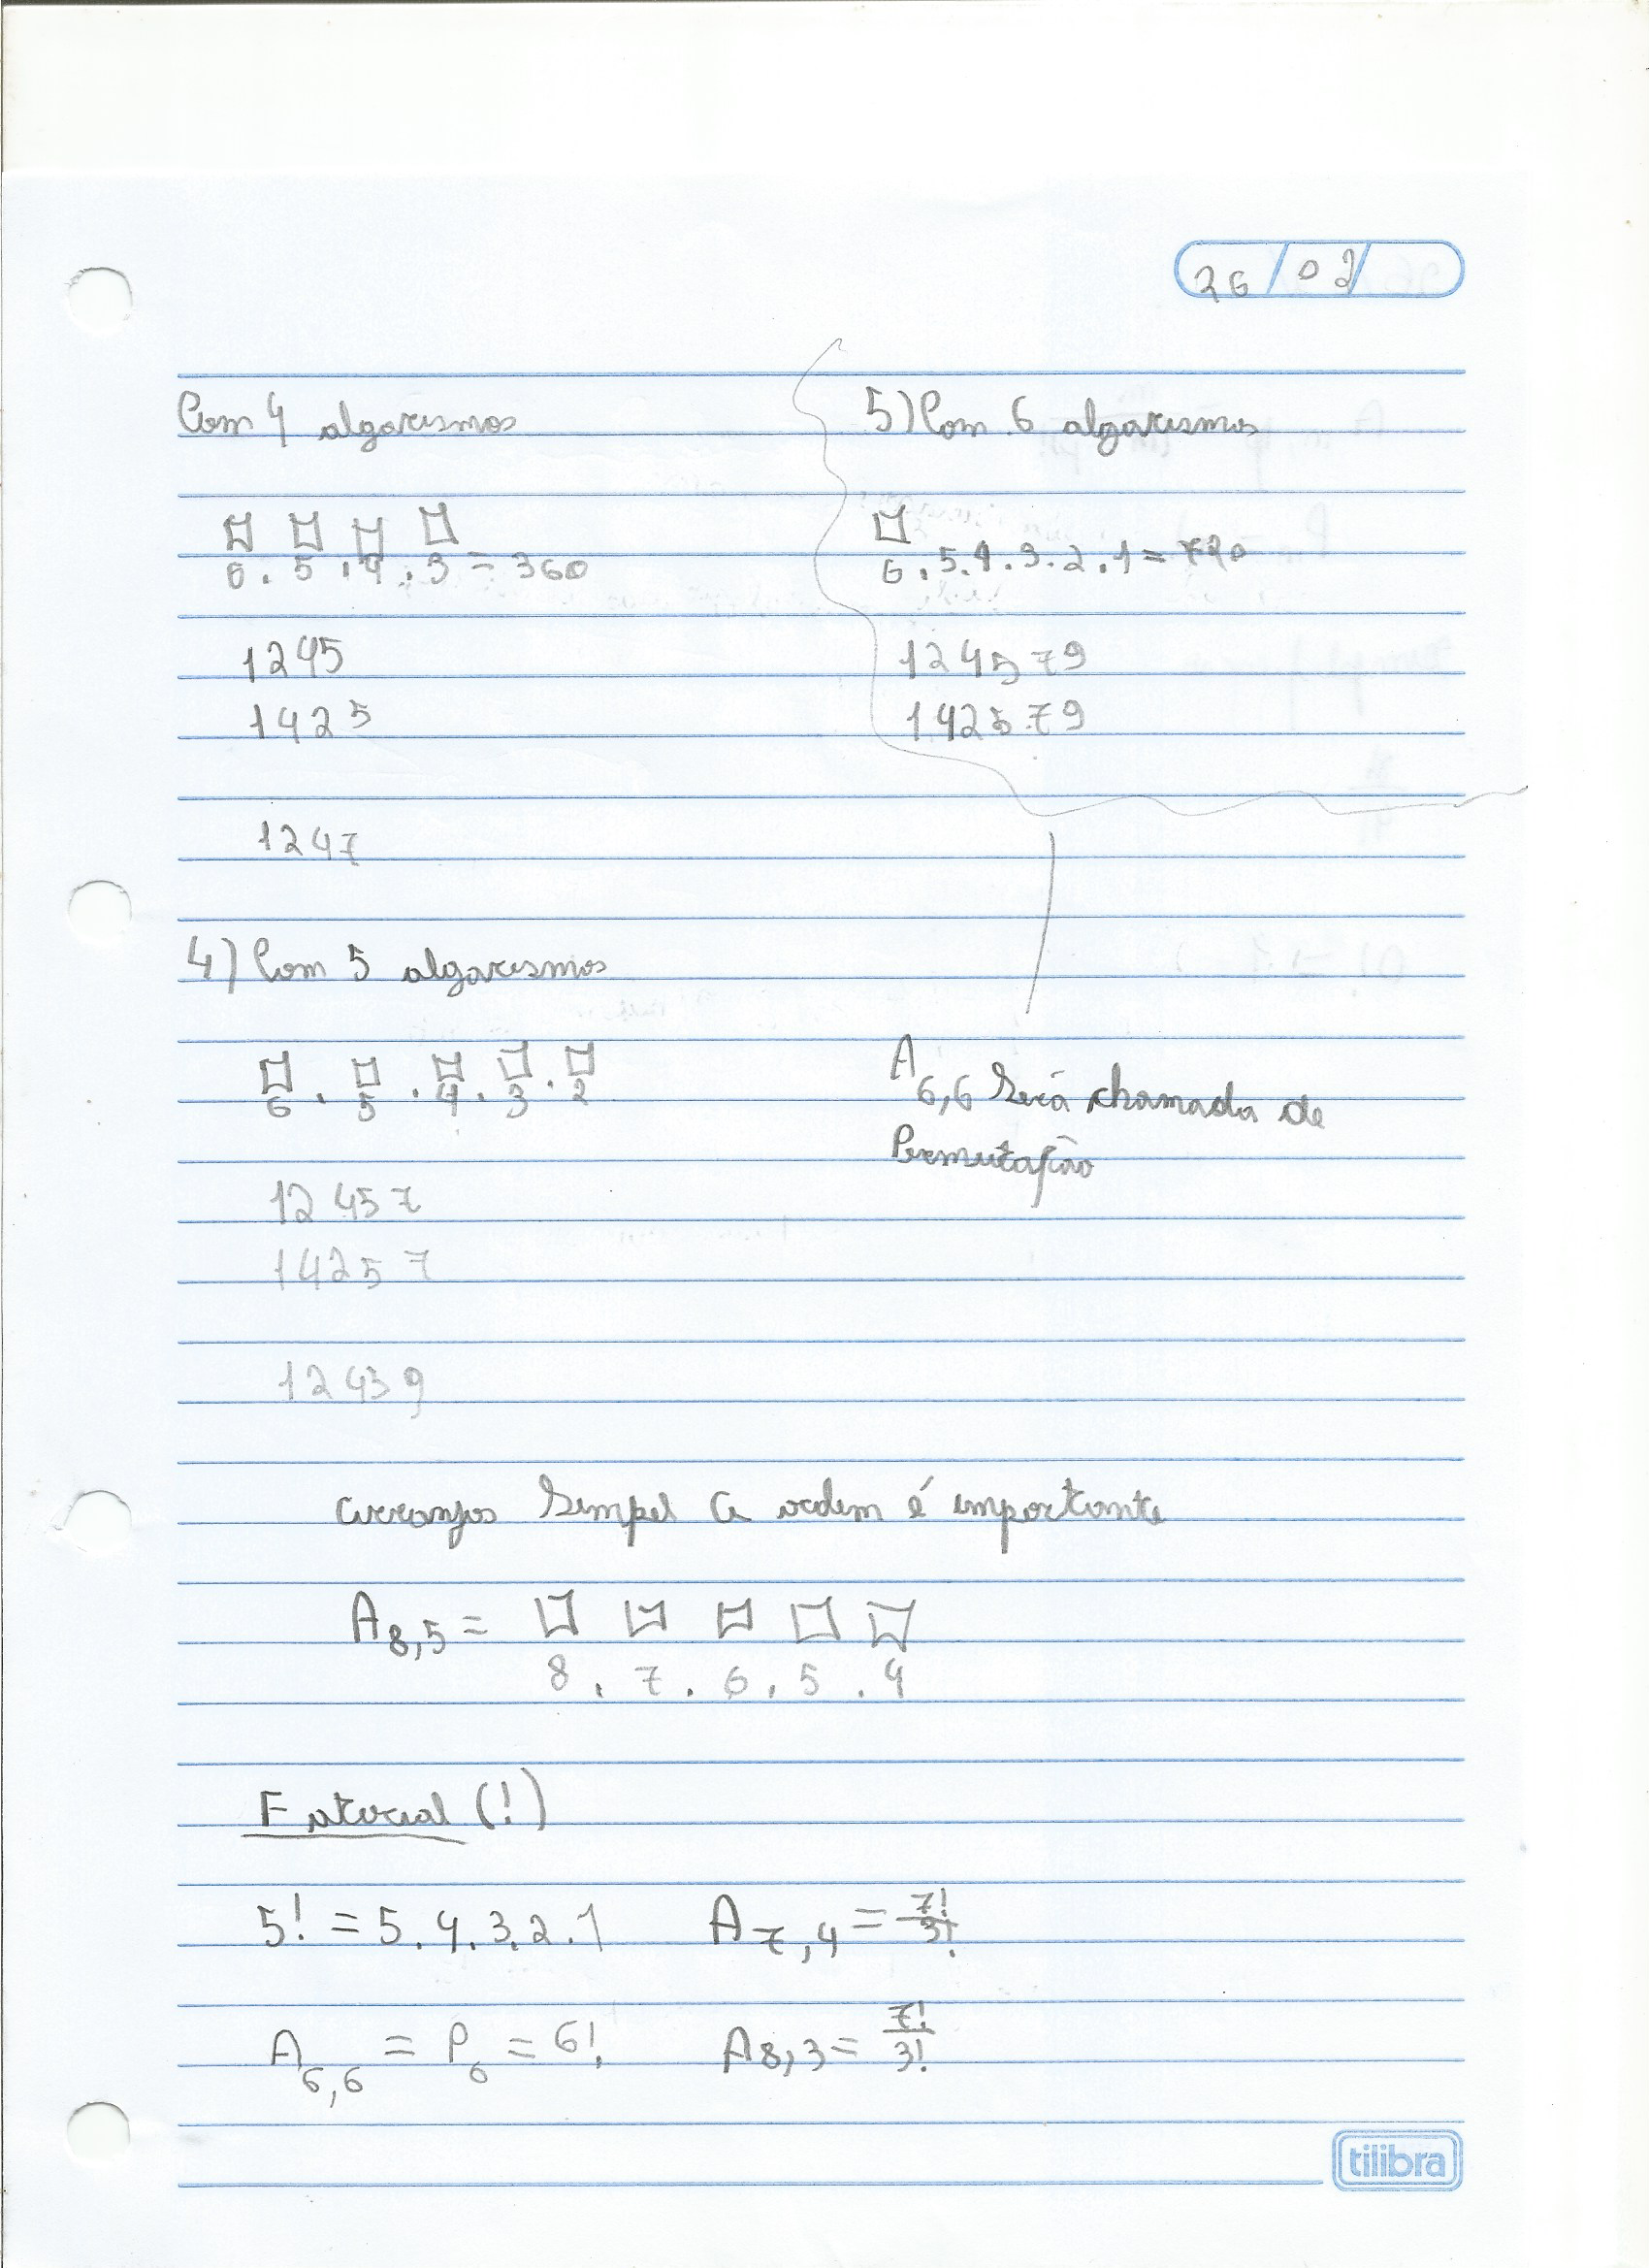 26/02/
Com 4 algarismos
6 . 5 . 4 . 3 = 360
1245
1425
1247
5) Com 6 algarismos
6 . 5 . 4 . 3 . 2 . 1 = 720
124579
142579
4) Com 5 algarismos
6 . 5 . 4 . 3 . 2
12457
14257
12459
A6,6 Será chamada de
Permutação
arranjos Simpel a ordem é importante
A8,5 =
8 . 7 . 6 . 5 . 4
Fatorial (!)
5! = 5.4.3.2.1 A7,4 = 7!/3!
A6,6 = P6 = 6! A8,3 = 7!/3!
tilibra